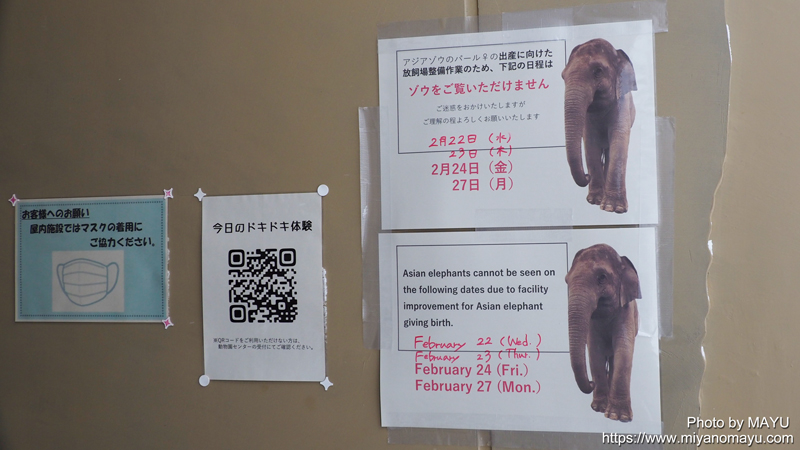 お客様へのお願い
屋内施設ではマスクの着用に
ご協力ください。
今日のドキドキ体験
※QRコードをご利用いただけない方は、
動物園センターの受付にてご確認ください。
アジアゾウのパール♀の出産に向けた
放飼場整備作業のため、下記の日程は
ゾウをご覧いただけません
ご迷惑をおかけいたしますが
ご理解の程よろしくお願いいたします
2月22日（水）
23日（木）
2月24日（金）
27日（月）
Asian elephants cannot be seen on
the following dates due to facility
improvement for Asian elephant
giving birth.
February 22 (Wed.)
February 23 (Thur.)
February 24 (Fri.)
February 27 (Mon.)
Photo by MAYU
https://www.miyanomayu.com/